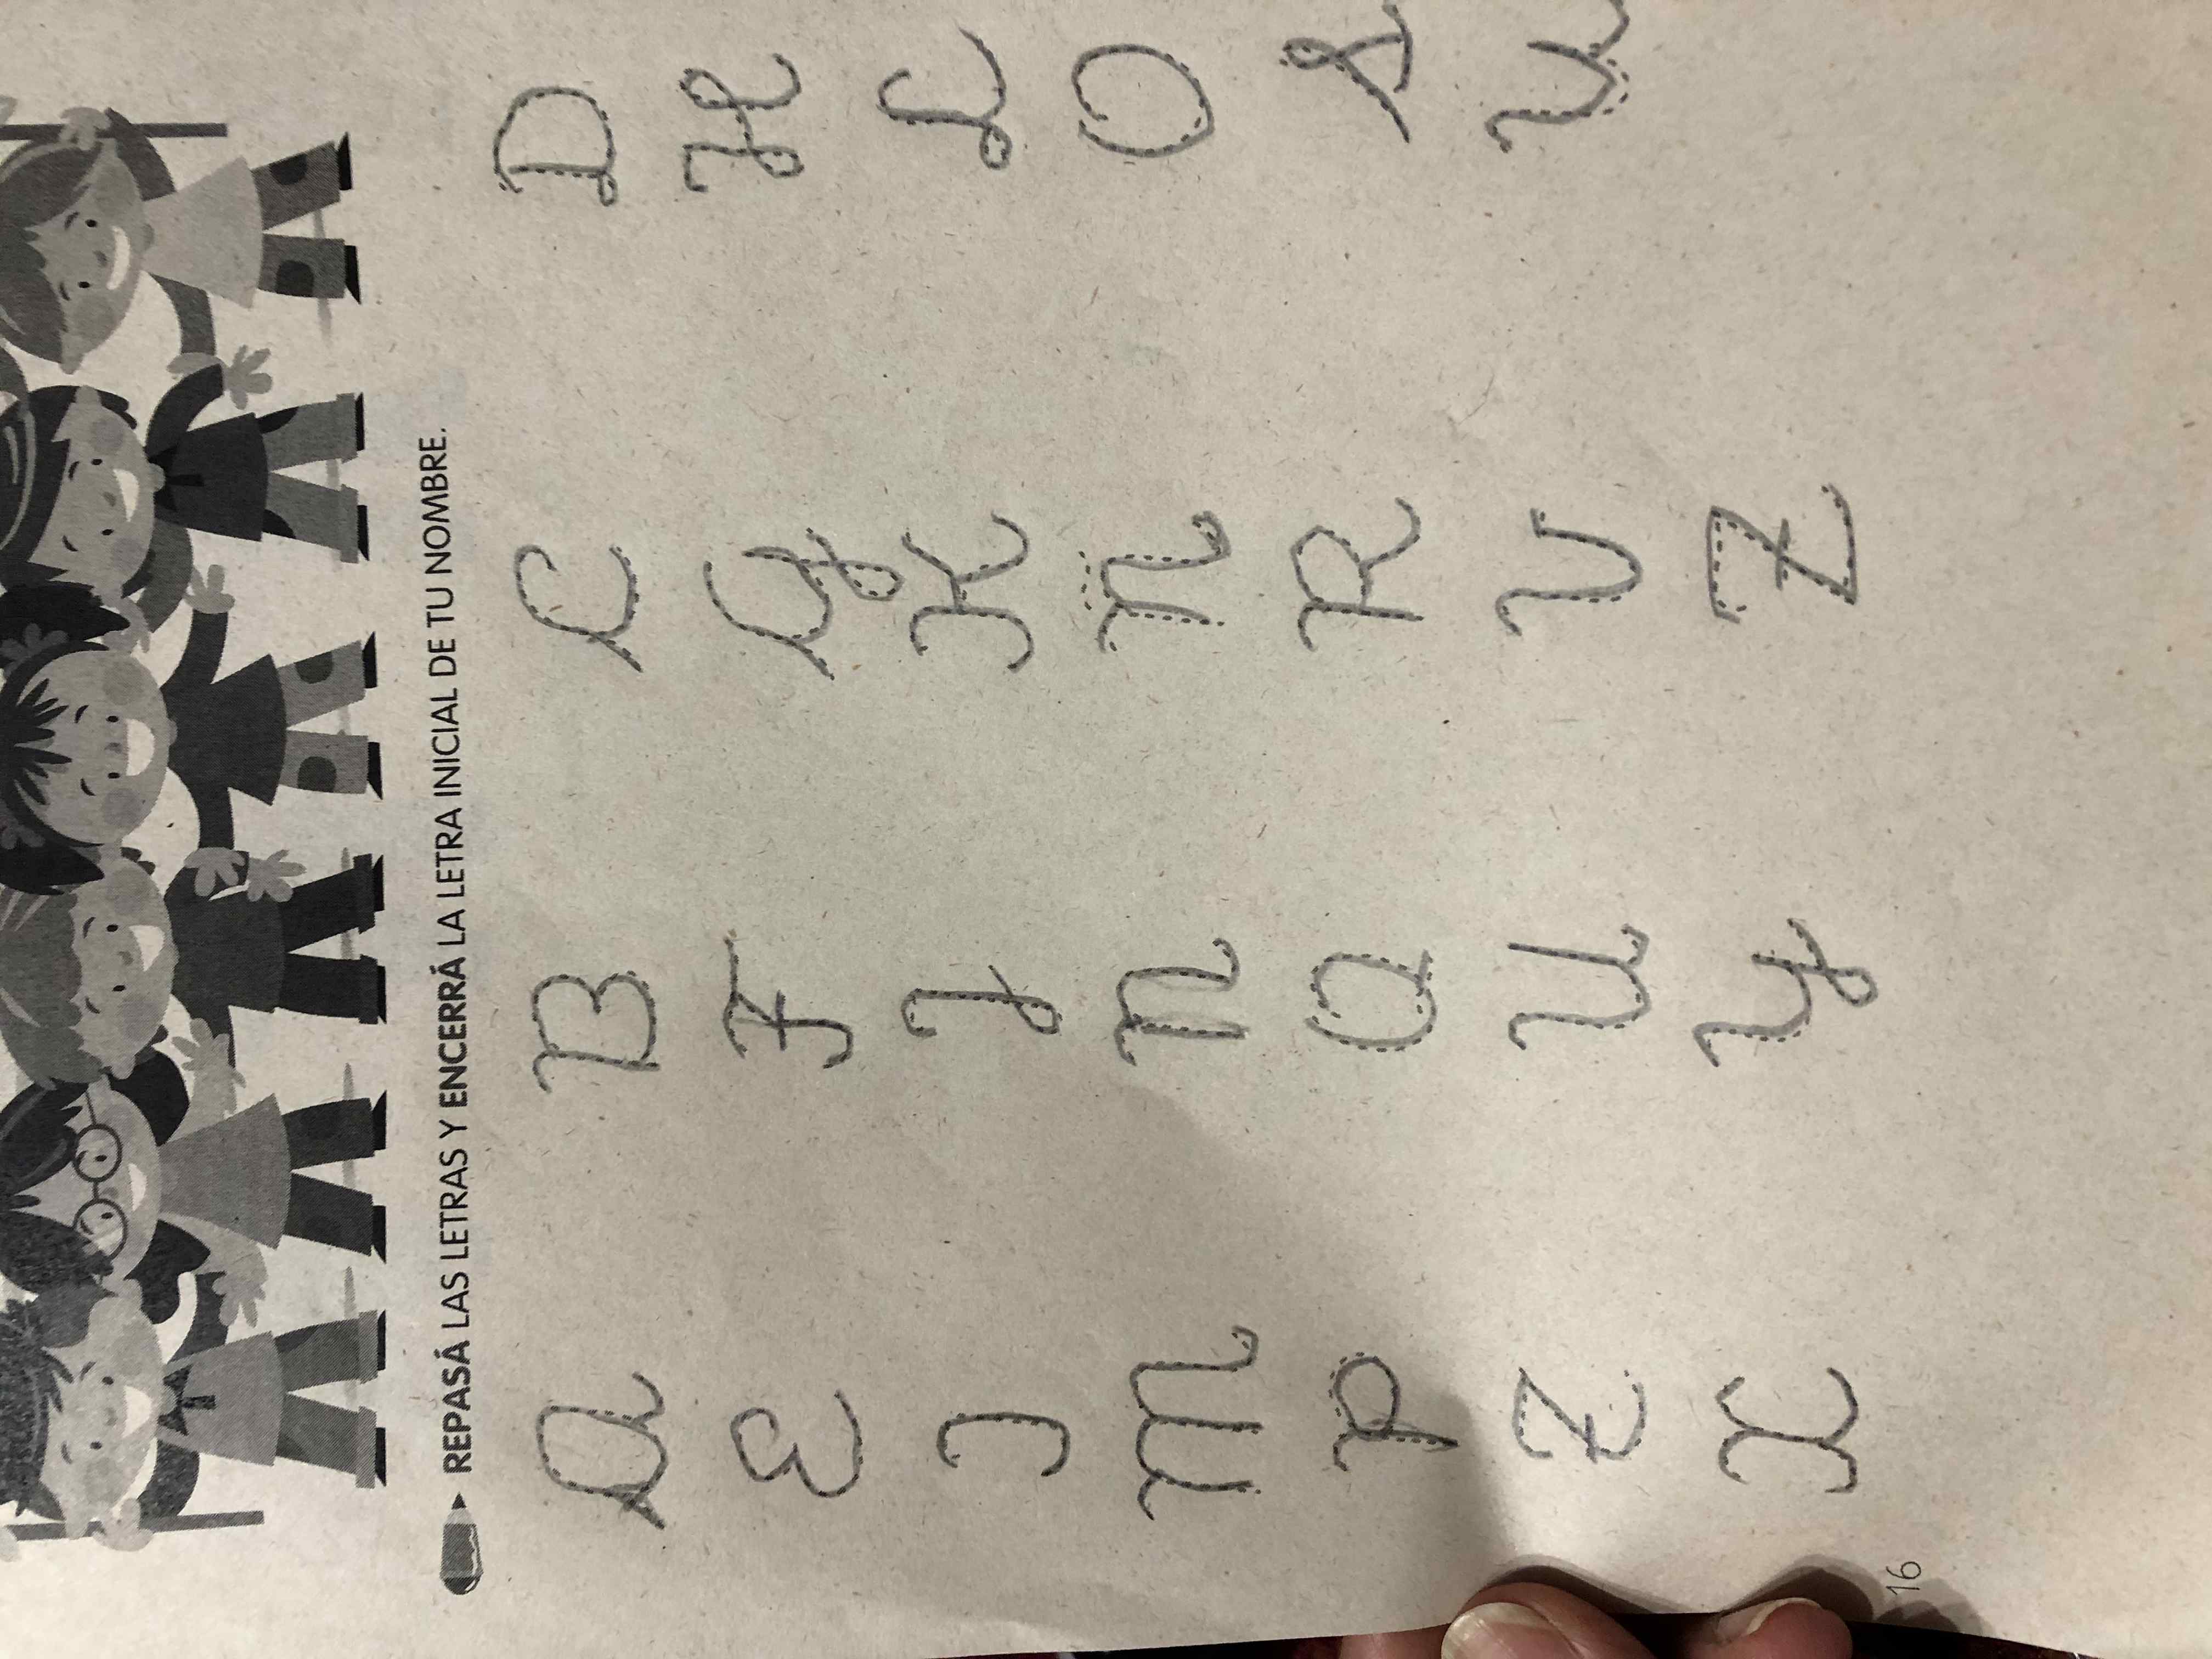 REPASÁ LAS LETRAS Y ENCERRÁ LA LETRA INICIAL DE TU NOMBRE.
A B C D
E F G H
I J K L
M N Ñ O
P Q R S
T U V W
X Y Z
16